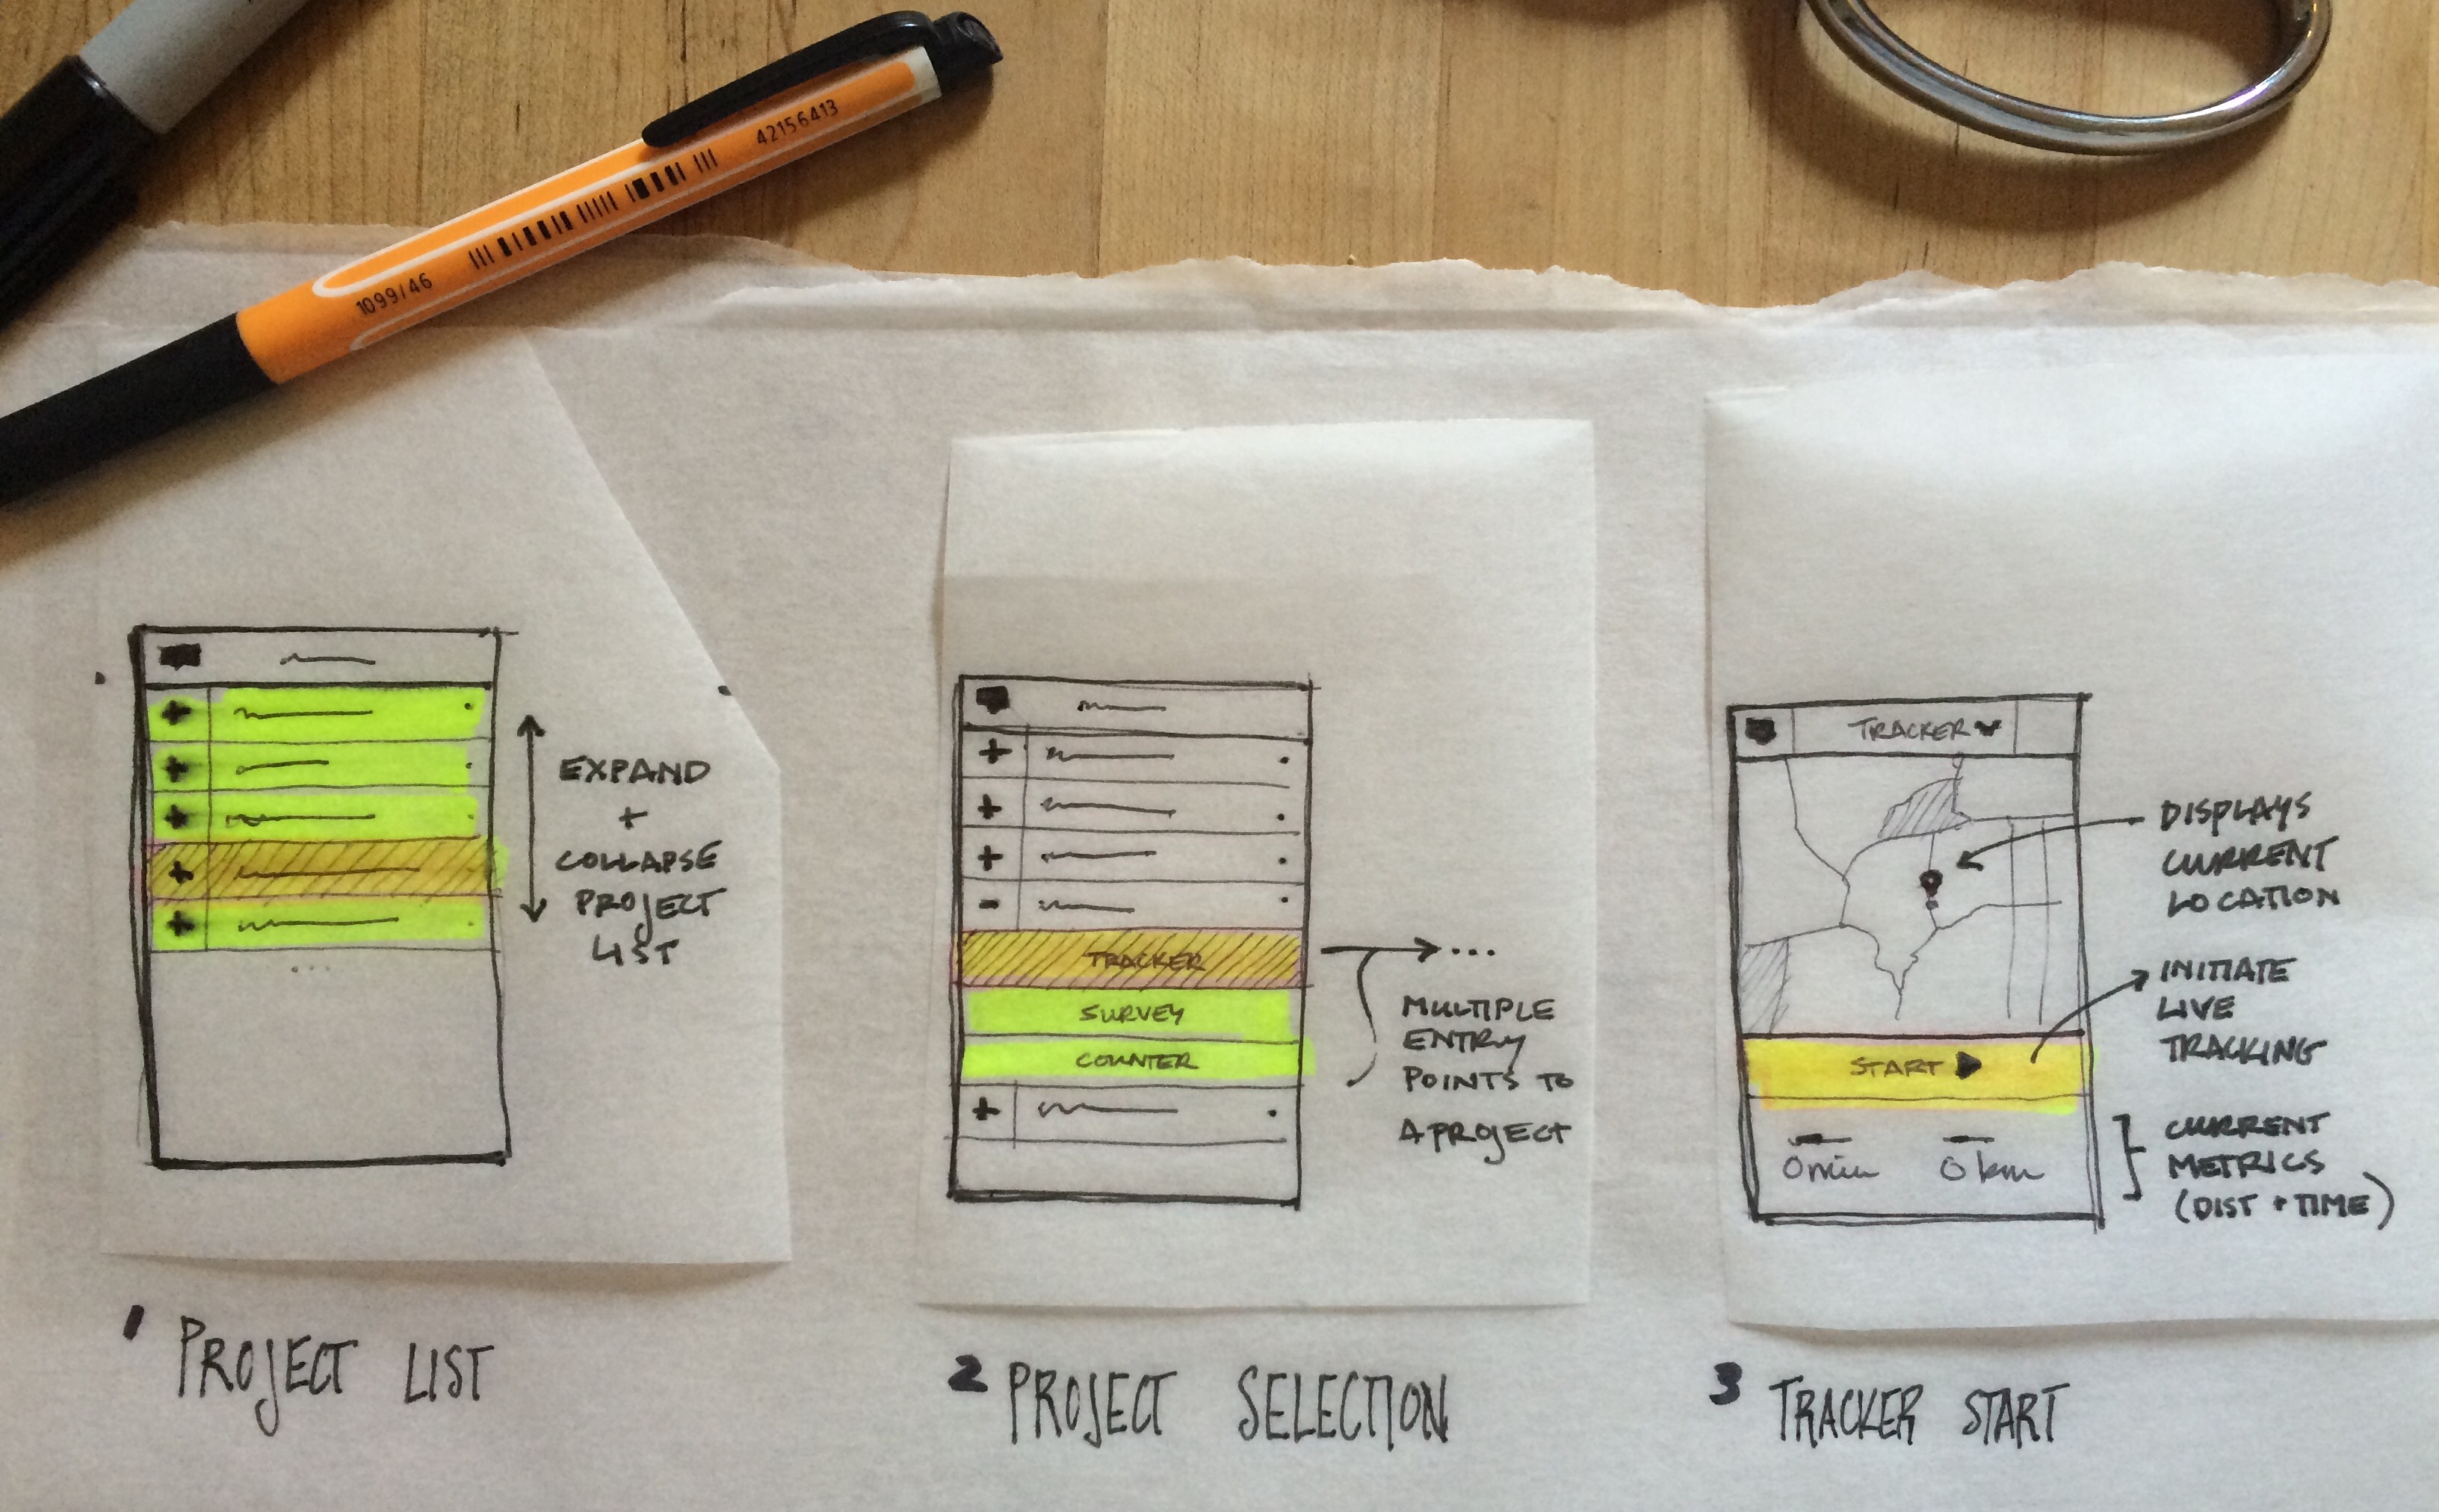 42156413
1099/46
EXPAND
+
COLLAPSE
PROJECT
LIST
1 PROJECT LIST
TRACKER
SURVEY
COUNTER
...
MULTIPLE
ENTRY
POINTS TO
A PROJECT
2 PROJECT SELECTION
TRACKER
DISPLAYS
CURRENT
LOCATION
START
INITIATE
LIVE
TRACKING
0 min
0 km
CURRENT
METRICS
(DIST + TIME)
3 TRACKER START